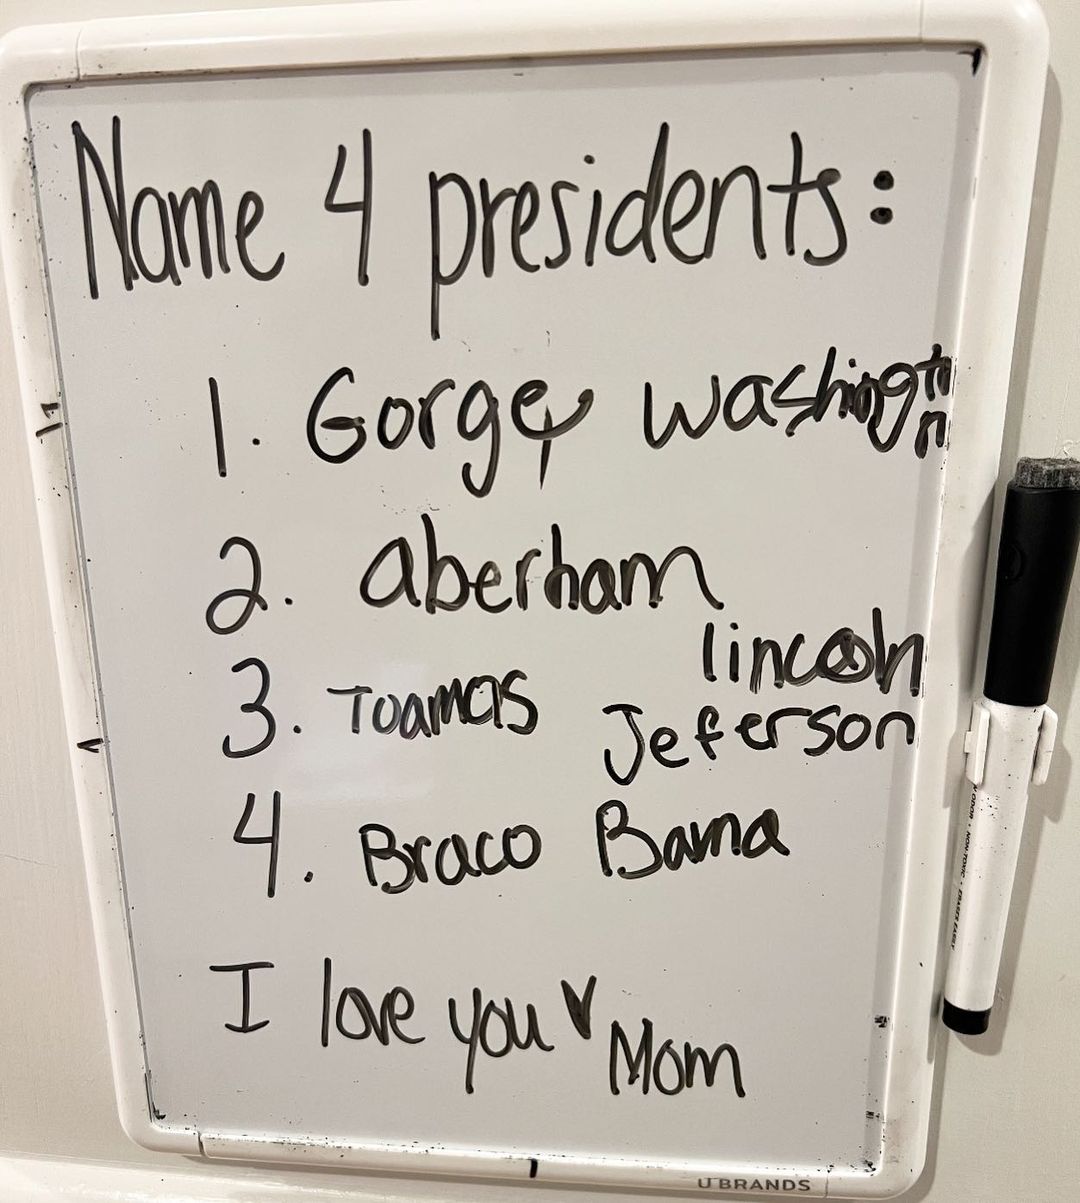 Name 4 presidents:
1. Gorge washington
2. aberham
lincoln
3. Toamas Jeferson
4. Braco Bama
I love you
Mom
U BRANDS
NON-TOXIC